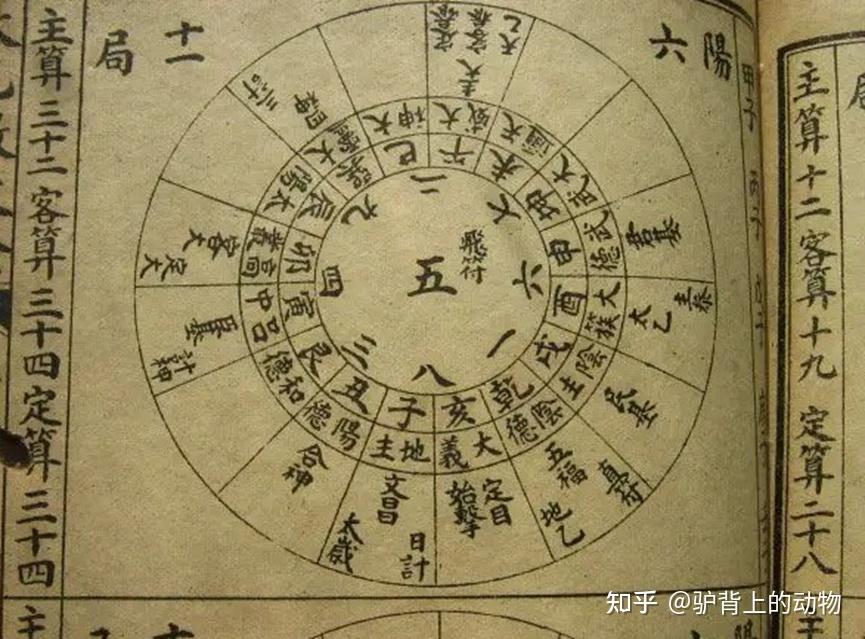 陽六
十一
局
主算三十二客算三十四定算三十四
主算十二客算十九 定算二十八
甲子
局
五
飛符
二
七
六
一
八
三
四
九
巳
午
未
坤
申
酉
戌
乾
亥
子
丑
艮
寅
卯
辰
巽
大神
大威
天道
大武
武德
大簇
陰主
陰德
大義
地主
陽德
和德
呂申
高叢
太陽
天乙
客泰
定泰
主大
君基
太乙
民基
五福
直符
地乙
定目
始擊
文昌
太歲
日計
合神
臣基
計神
客大
定大
主
知乎 @驴背上的动物